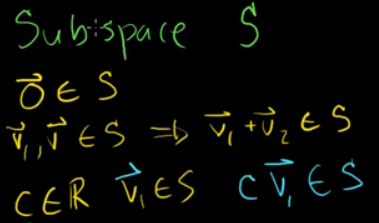 Subspace S
0⃗ ∈ S
v⃗₁, v⃗ ∈ S ⇒ v⃗₁ + v⃗₂ ∈ S
C ∈ ℝ v⃗₁ ∈ S c v⃗₁ ∈ S